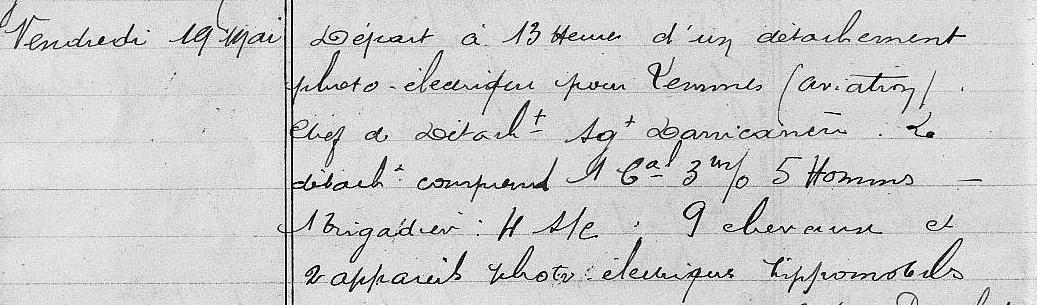 Vendredi 19 Mai Départ à 13 Heures d'un détachement
photo-électrique pour (aviation).
Chef de Détach^t Sg^t Le
détach^t comprend 1 C^al 3 m/o 5 Hommes —
1 Brigadier : 4 s/c . 9 chevaux et
2 appareils photo-électriques hippomobiles